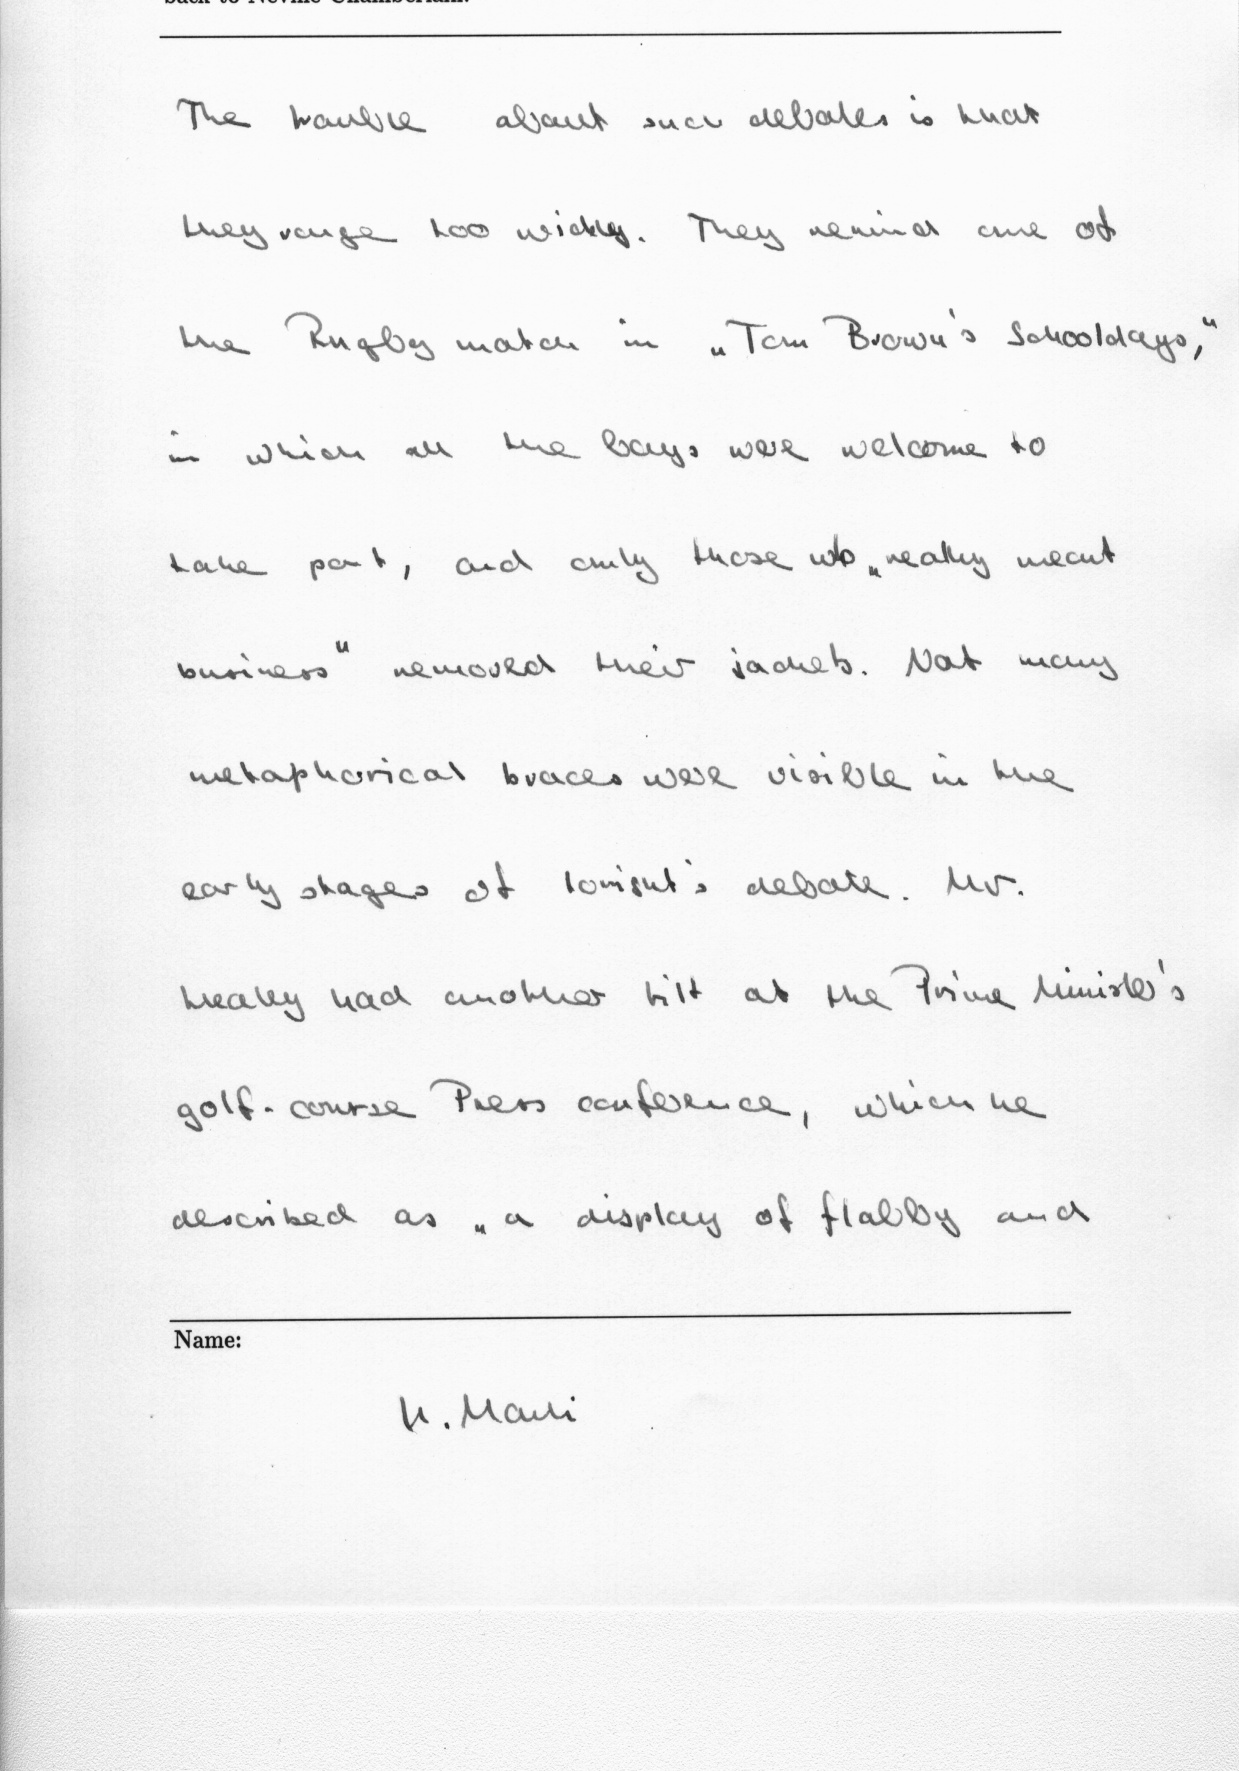 back to Neville Chamberlain.
The trouble about such debates is that
they range too widely. They remind one of
the Rugby match in „Tom Brown's Schooldays,"
in which all the boys were welcome to
take part, and only those who „really meant
business" removed their jackets. Not many
metaphorical braces were visible in the
early stages of tonight's debate. Mr.
Healey had another tilt at the Prime Minister's
golf-course Press conference, which he
described as „a display of flabby and
Name: